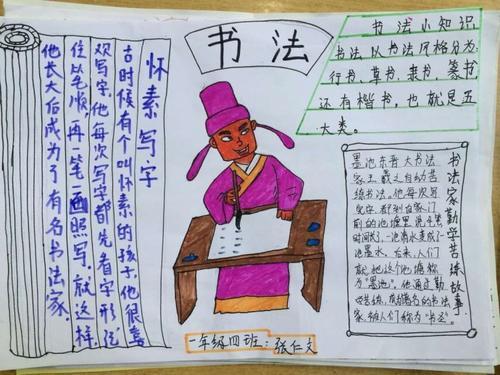 书法
怀素写字
古时候有个叫怀素的孩子,他很喜
欢写字,他每次写字都先看字形,记
住笔顺,再一笔一画照写,就这样
他长大后成为了有名书法家。
书法小知识
书法以书法风格分为:
行书、草书、隶书、篆书
还有楷书,也就是五
大类。
书法家勤学苦练故事
墨池东晋大书法
家王羲之自幼苦
练书法。他每次写
完字,都到自家门
前的池塘里洗毛笔
时间长了,一池清水变成了一
池墨水。后来,人们
就把这个池塘称
为“墨池”。他通过勤
学苦练,成为著名的书法
家,被人们称为“书圣”。
一年级四班:张仁文